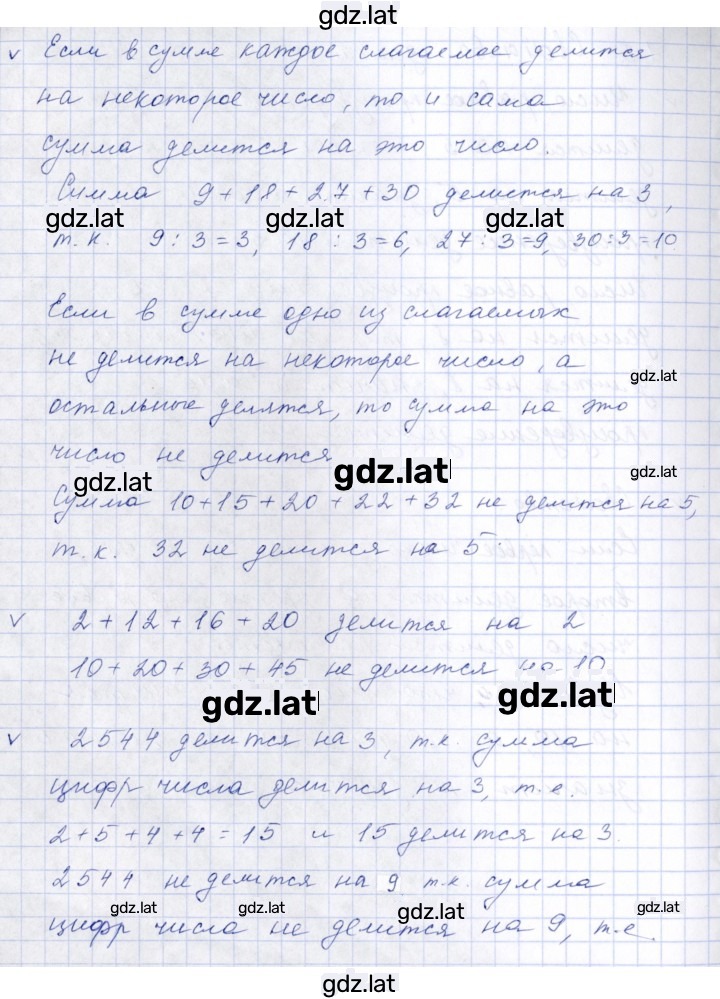 gdz.lat
v Если в сумме каждое слагаемое делится
на некоторое число, то и сама
сумма делится на это число.
Сумма 9 + 18 + 27 + 30 делится на 3,
gdz.lat gdz.lat gdz.lat
т.к. 9 : 3 = 3, 18 : 3 = 6, 27 : 3 = 9, 30 : 3 = 10
Если в сумме одно из слагаемых
не делится на некоторое число, а
gdz.lat
остальные делятся, то сумма на это
число не делится
gdz.lat gdz.lat gdz.lat
Сумма 10 + 15 + 20 + 22 + 32 не делится на 5,
т.к. 32 не делится на 5
v 2 + 12 + 16 + 20 делится на 2
10 + 20 + 30 + 45 не делится на 10
gdz.lat gdz.lat
v 2544 делится на 3, т.к. сумма
цифр числа делится на 3, т.е.
2 + 5 + 4 + 4 = 15 и 15 делится на 3.
2544 не делится на 9 т.к. сумма
gdz.lat gdz.lat gdz.lat gdz.lat
цифр числа не делится на 9, т.е.
gdz.lat